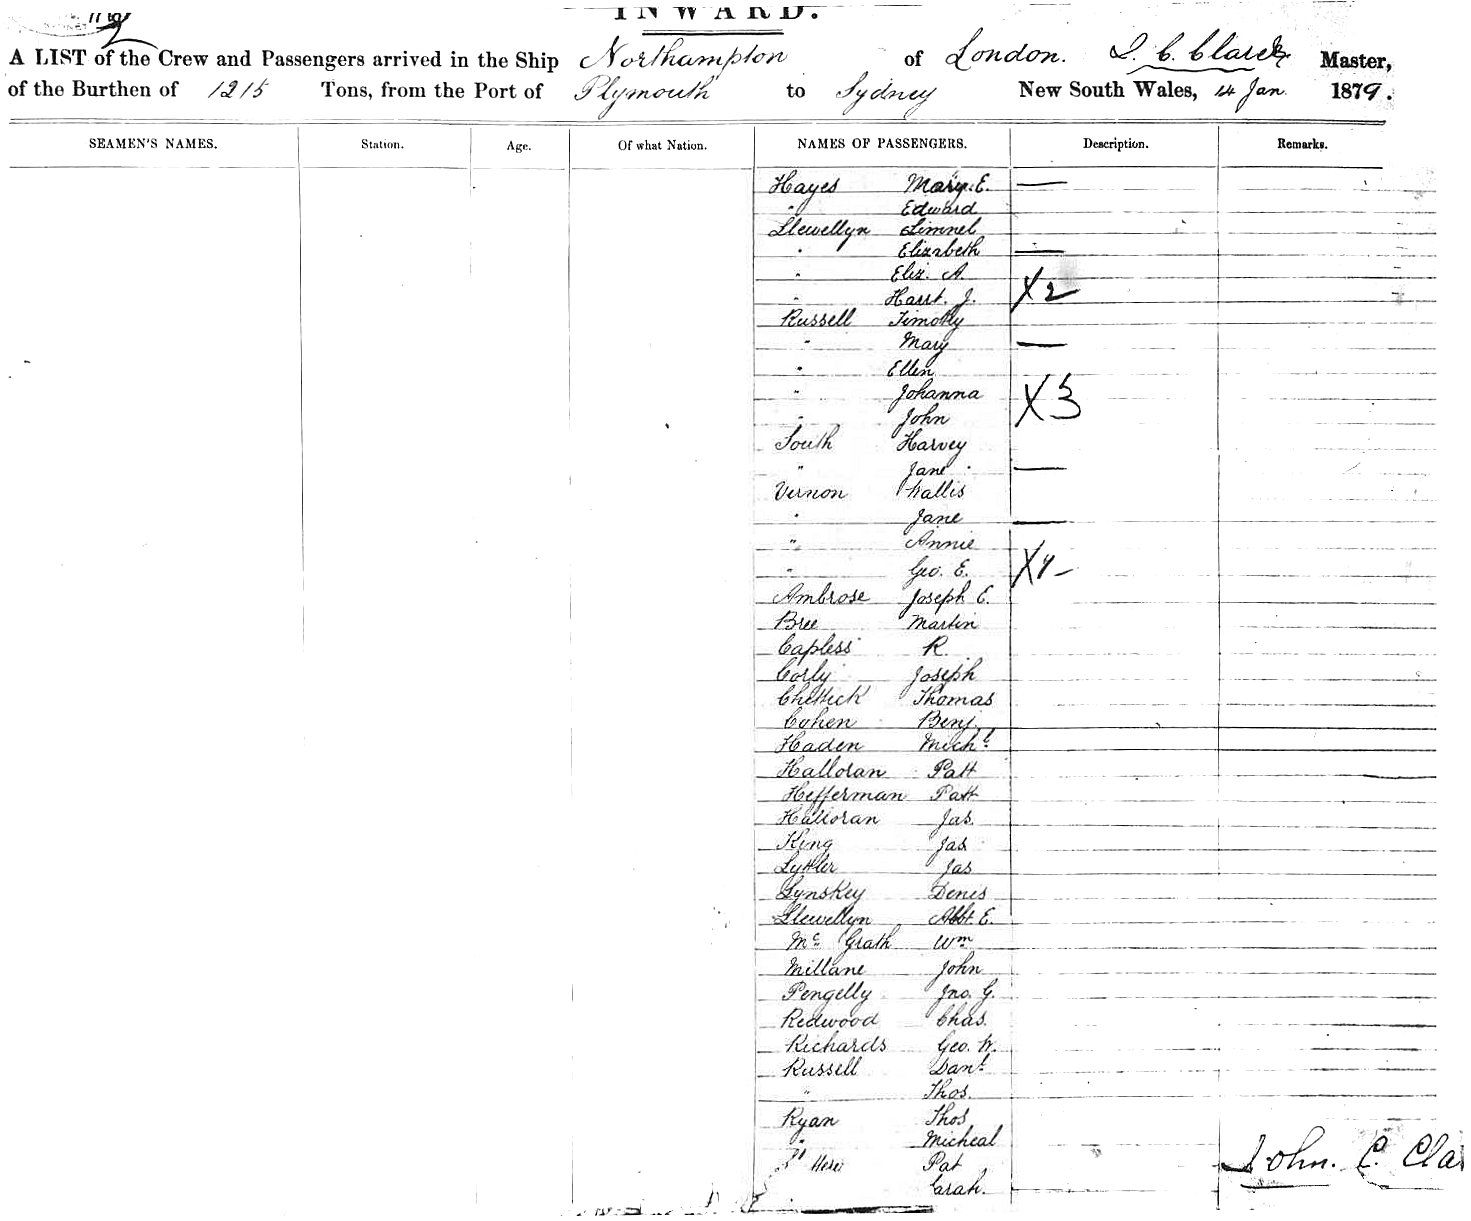 INWARD.
A LIST of the Crew and Passengers arrived in the Ship Northampton of London. J. C. Clare Master,
of the Burthen of 1215 Tons, from the Port of Plymouth to Sydney New South Wales, 14 Jan. 1879.
SEAMEN'S NAMES. Station. Age. Of what Nation. NAMES OF PASSENGERS. Description. Remarks.
Hayes Mary. E. —
" Edward
Llewellyn Limnel
" Elizabeth —
" Eliz. A
" Harrt. J. X2
Russell Timothy
" Mary —
" Ellen
" Johanna
" John X3
South Harvey
" Jane —
Vernon Wallis
" Jane —
" Annie
" Geo. E.
Ambrose Joseph E.
Bree Martin
Capless R.
Corly Joseph
Chettick Thomas
Cohen Benj.
Haden Michl.
Halloran Patt
Hefferman Patt
Halloran Jas.
King Jas
Lyttler Jas
Lynskey Denis
Llewellyn E.
Mc Grath Wm
Millane John
Pengelly Jno. G.
Redwood Chas.
Richards Geo. W.
Russell Danl.
" Thos.
Ryan Thos
" Micheal
Pat
John. C. Cla